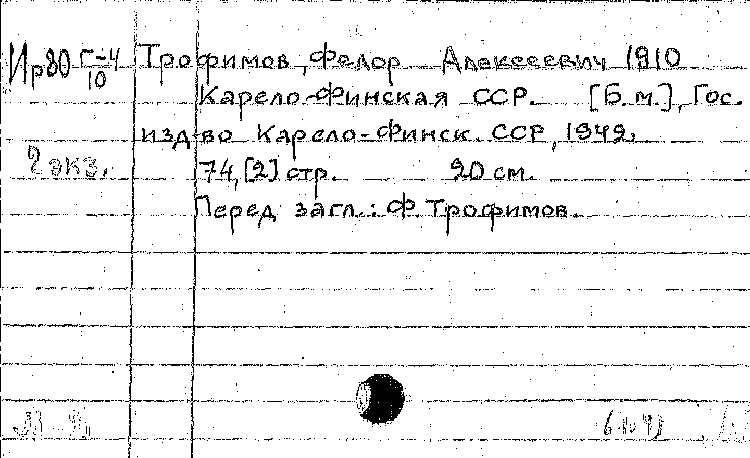 Ир80 Г-4/10 Трофимов, Федор Алексеевич 1910
Карело-Финская ССР. [Б.м.], Гос.
изд-во Карело-Финск. ССР, 1949.
2 экз. 74, [2] стр. 20 см.
Перед загл.: Ф. Трофимов.